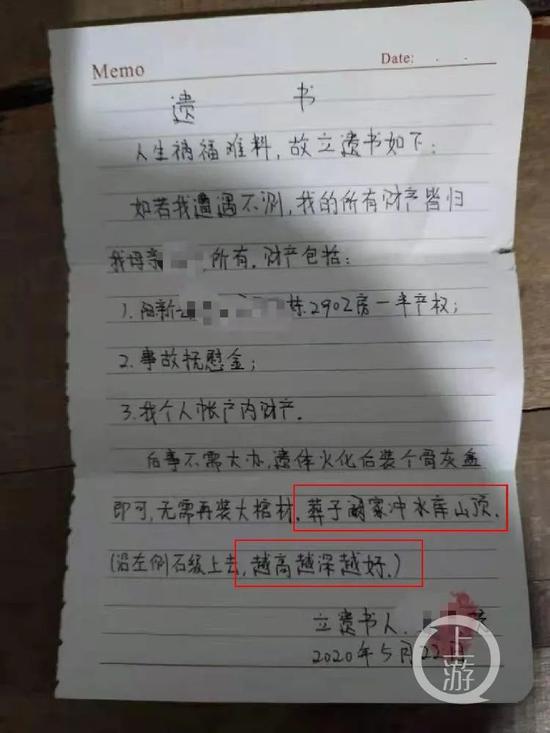 Memo
Date: . .
遗 书
人生祸福难料，故立遗书如下：
如若我遭遇不测，我的所有财产皆归
我母亲 所有．财产包括：
1. 阳新 栋2902房一半产权；
2. 事故抚慰金；
3. 我个人帐户内财产．
后事不需大办，遗体火化后装个骨灰盒
即可，无需再装大棺材．葬于 寨冲水库山顶．
（沿左侧石级上去，越高越深越好．）
立遗书人．
2020年5月22日
上游